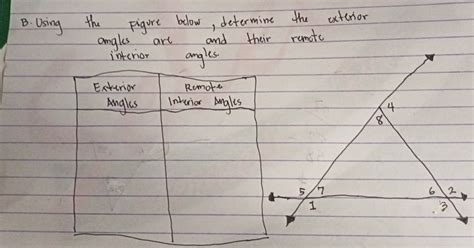 B. Using the figure below, determine the exterior
angles are and their remote
interior angles
Exterior Angles
Remote Interior Angles
4
8
5 7
1
6 2
3